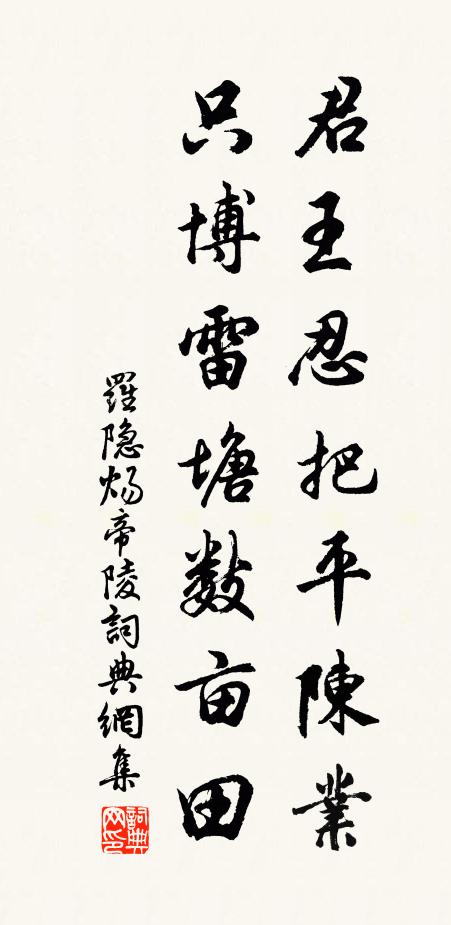 君王忍把平陳業
只博雷塘數亩田
羅隐炀帝陵詞典網集
詞典网印